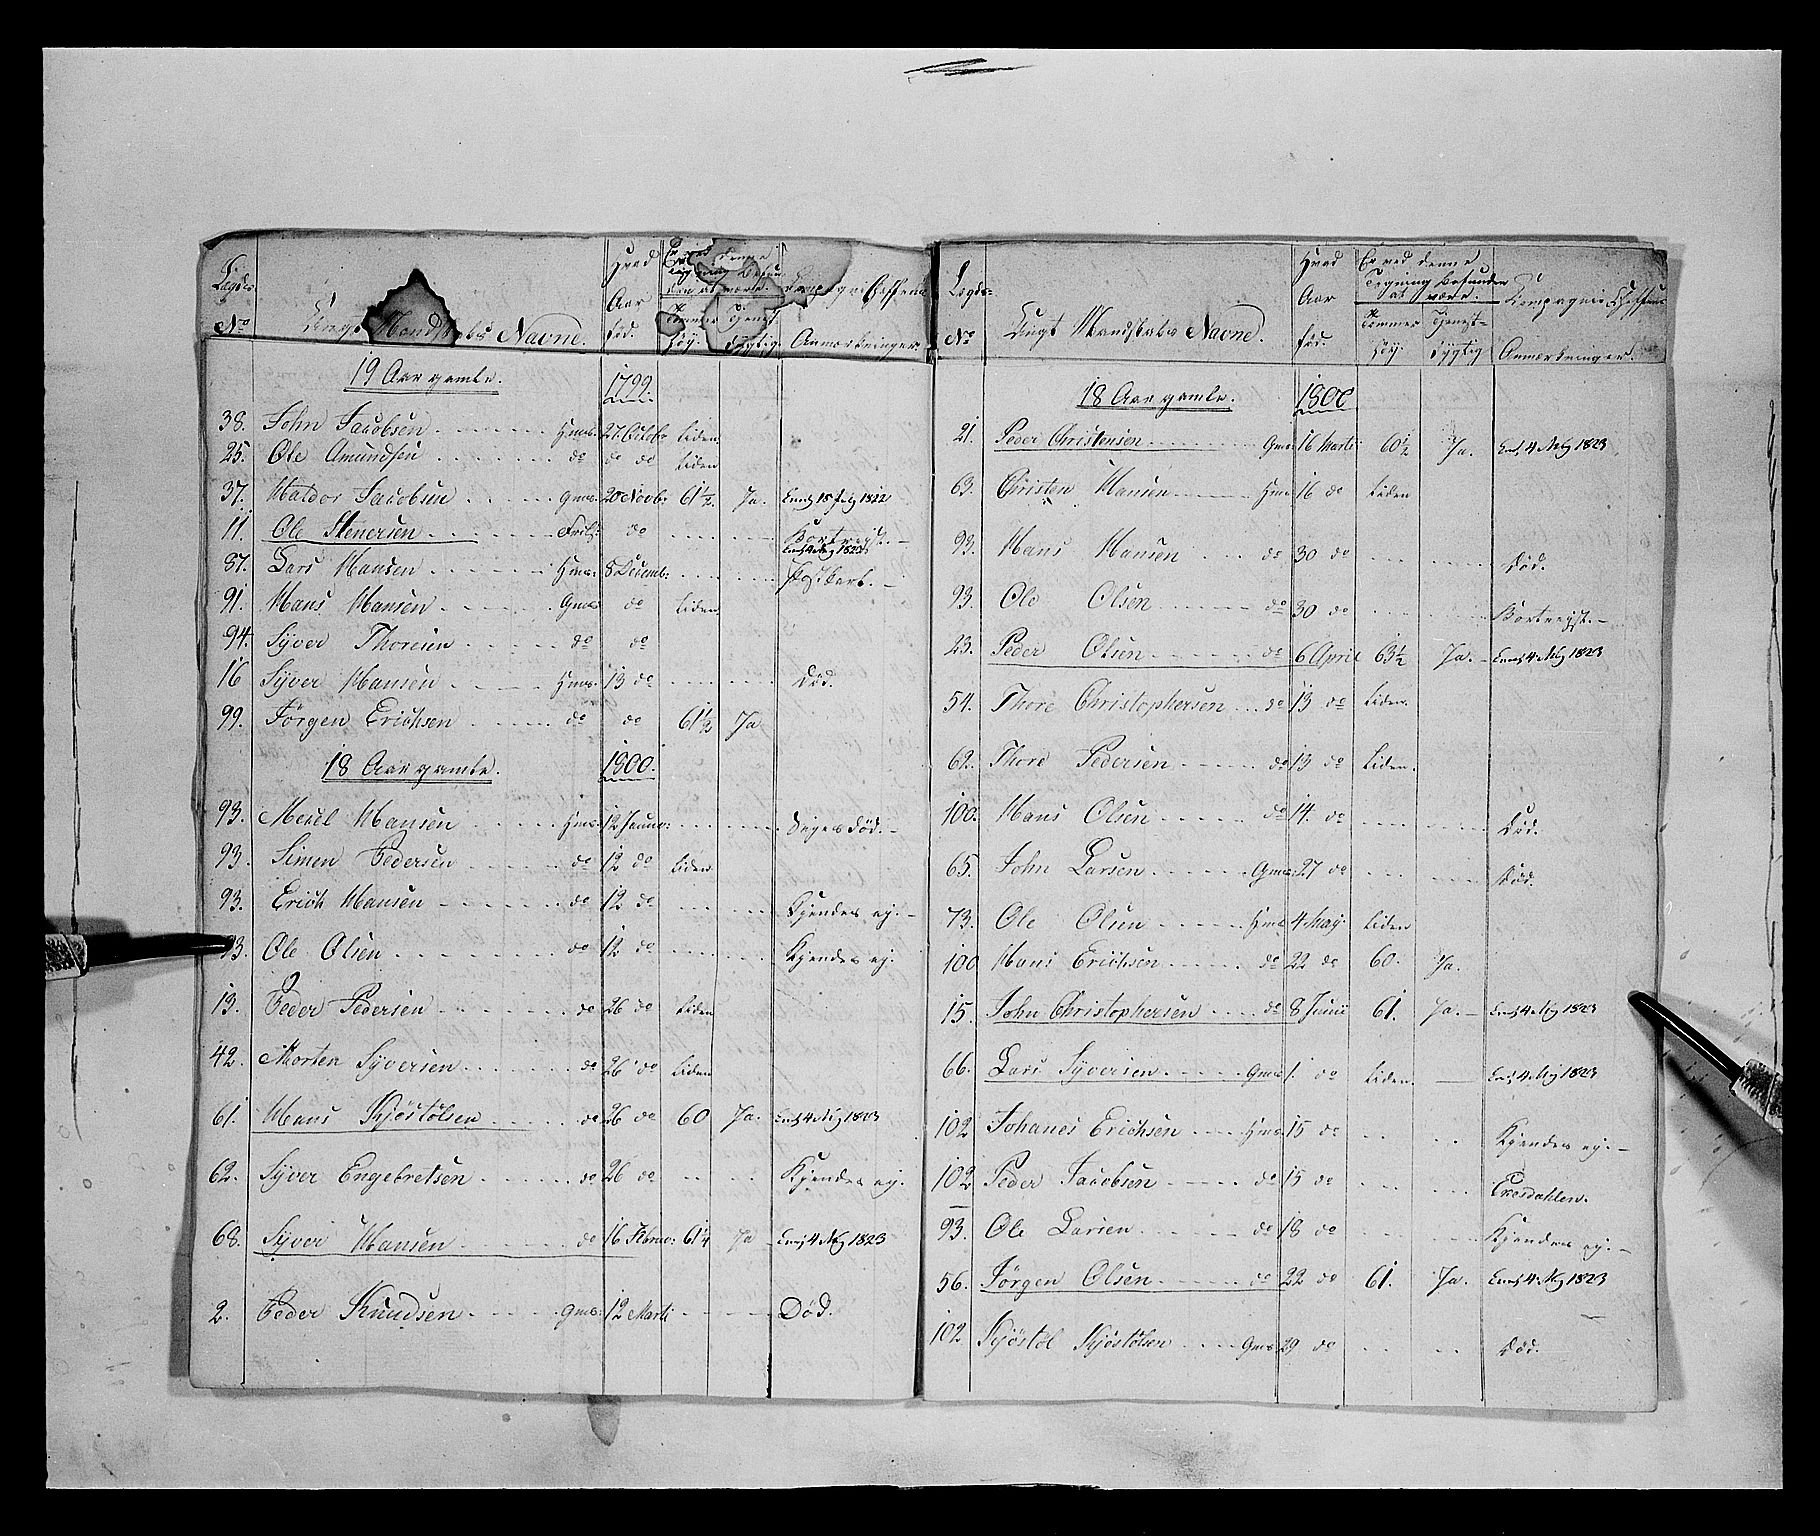 Lægds No
Ungt Mandskabs Navne.
Hvad Aar Fød.
Er ved denne Tegning Befunden at være.
Tommer Høy.
Tjenestdygtig
Compagnie Cheffens Anmærkninger
19 Aar gamle. 1799.
38. John Jacobsen Hms: 27 Octobr Liden
25. Ole Amundsen do do do Liden
37. Haldor Jacobsen Gms. 20 Novbr 61½. Ja. 1822
11. Ole Stenersen do Bortreist.
37. Lars Hansen Hms: 8 Decemb: Postkarl.
91. Hans Hansen Gms do Liden
94. Syver Thoresen do do
16 Syver Hansen Hms. 13 do Död.
99. Jørgen Erichsen do do 61½ Ja
18 Aar gamle. 1800.
93. Hansen Hms: 12 Janno: Siges död.
93. Simen Pedersen do 12 do Liden
93. Erich Hansen do 12 do Kjendes ej.
93. Ole Olsen do 12 do Kjendes ej.
13. Peder Pedersen do 26 do Liden
42. Morten Syversen do 26 do Liden
61. Hans Kjøstolsen do 26 do 60 Ja. 4 May 1823
62. Syver Engebretsen do 26 do Kjendes ej.
68. Syver Hansen do 16 Februo: 61¼ Ja 4 May 1823
2. Peder Knudsen Gms: 12 Marti Död.
Lægds No
Ungt Mandskabs Navne.
Hvad Aar fød.
Er ved denne Tegning Befunden at være.
Tommer Høy.
Tjenestdygtig
Compagnie Cheffens Anmærkninger.
18 Aar gamle. 1800
21. Peder Christensen Gms 16 Marti 60½ Ja. 4 May 1823
63. Christen Hansen Hms 16 do Liden
93. Hans Hansen do 30 do Död.
93. Ole Olsen do 30 do Bortreist.
23. Peder Olsen do 6 April 63½ Ja. 4 May 1823
54. Thore Christophersen do 13 do Liden
62. Thore Pedersen do 13 do Liden.
100. Hans Olsen do 14. do Död.
65. John Larsen Gms: 27 do Död.
73. Ole Olsen Hms 4 May Liden
100 Hans Erichsen do 22 do 60. Ja.
15. John Christophersen do 8 Junii 61. Ja. 4 May 1823
66. Lars Syversen Gms 1. do Liden. 4 May 1823
102 Johanes Erichsen Hms 15 do Kjendes ej.
102 Peder Jacobsen do 15 do
93. Ole Larsen do 18 do Kjendes ej.
56. Jørgen Olsen do 22 do 61. Ja. 4 May 1823
102 Kjøstol Kjøstolsen Gms 29 do Död.